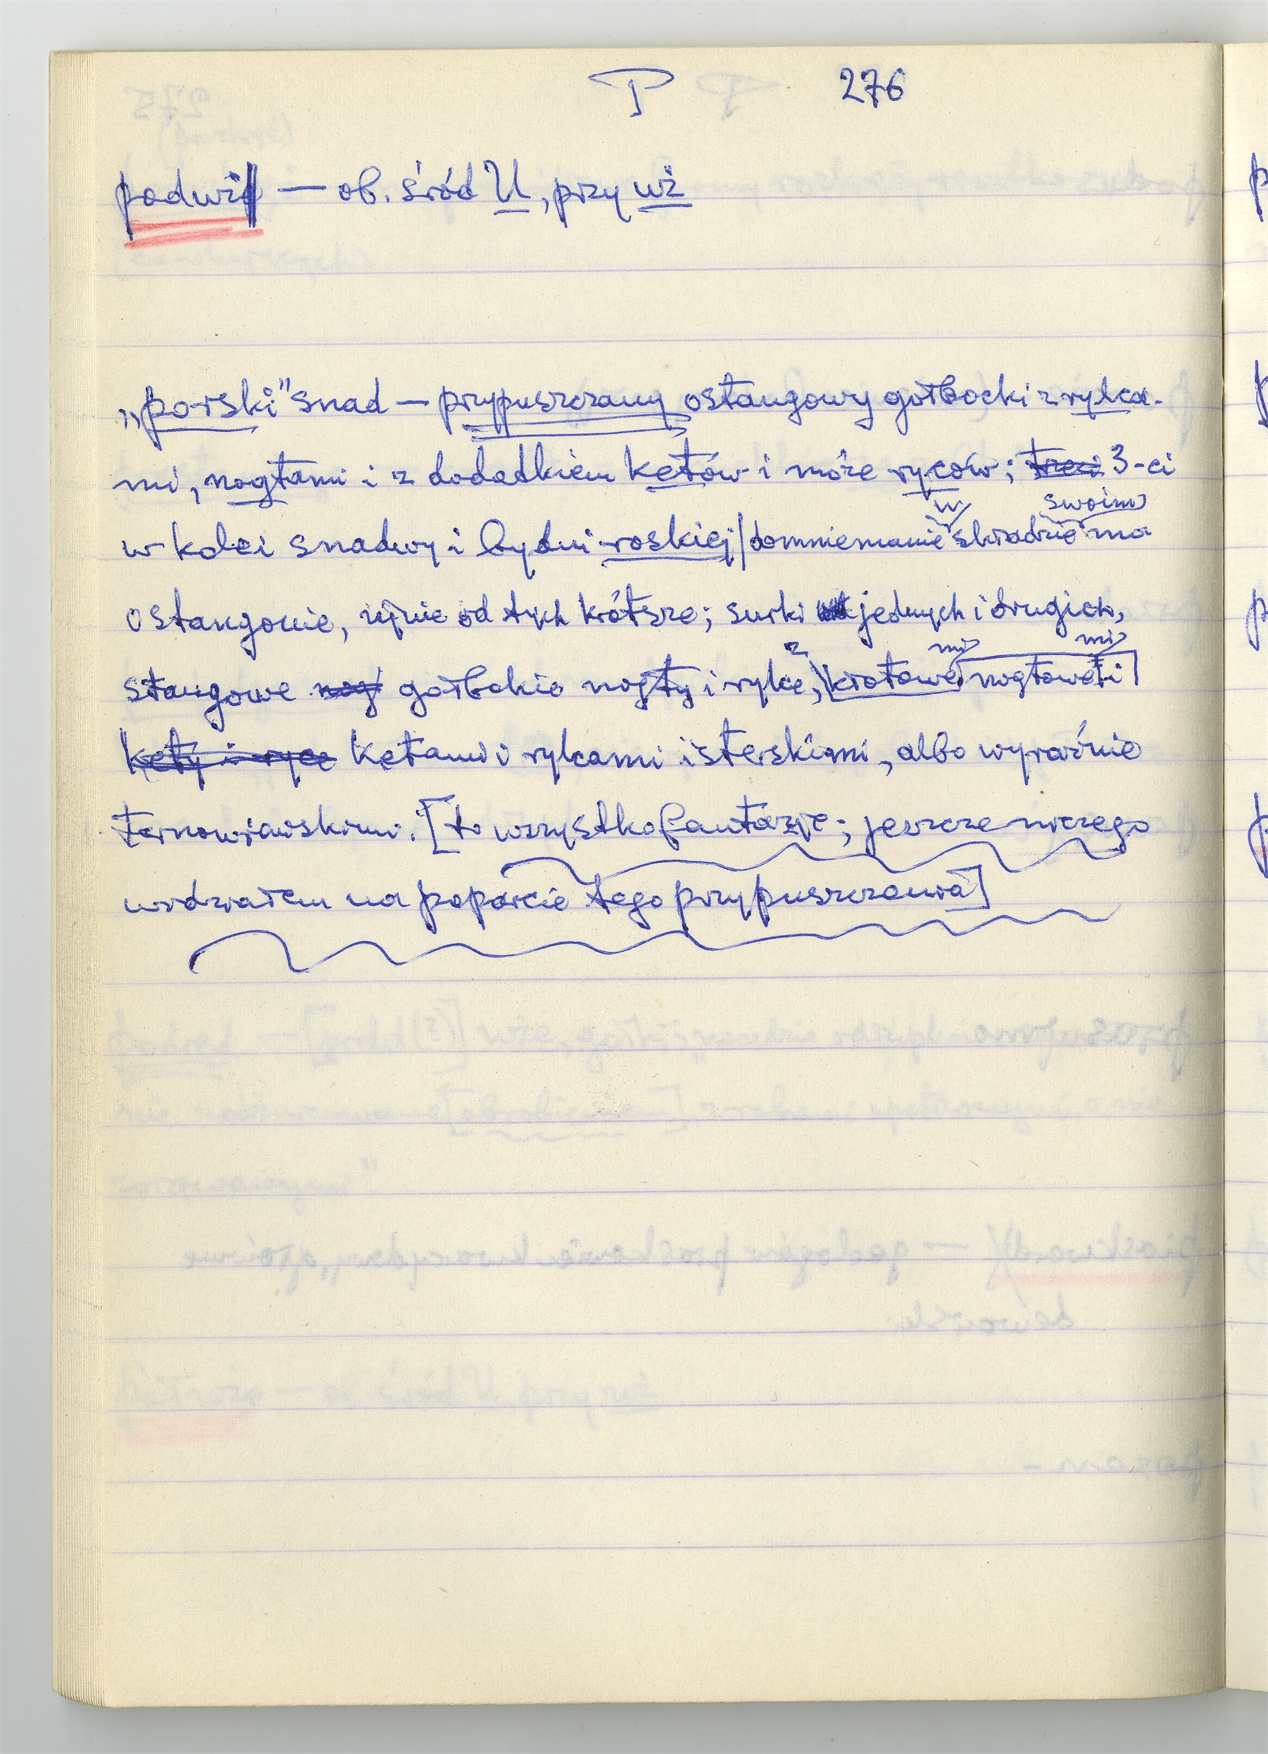 P 276
podwiś — ob. śród U, przy wż
„porski" snad — przypuszczany ostangowy gołbocki z rylca-
mi, nogtami i z dodatkiem ketów i może ryców; trzeci 3-ci
w swoim
w kolei snadwy i bydni roskiej / domniemanie składzie ma
ostangonie, niżnie od tych krótsze; surki jednych i drugich,
z mi mi
stangowe nog gołbokie nogty i rylce, krotowe nogtowe i
kety i ryce ketami i rylcami isterskimi, albo wyraźnie
ternowiawskimi. [to wszystko fantazje; jeszcze niczego
widziałem na poparcie tego przypuszczenia]